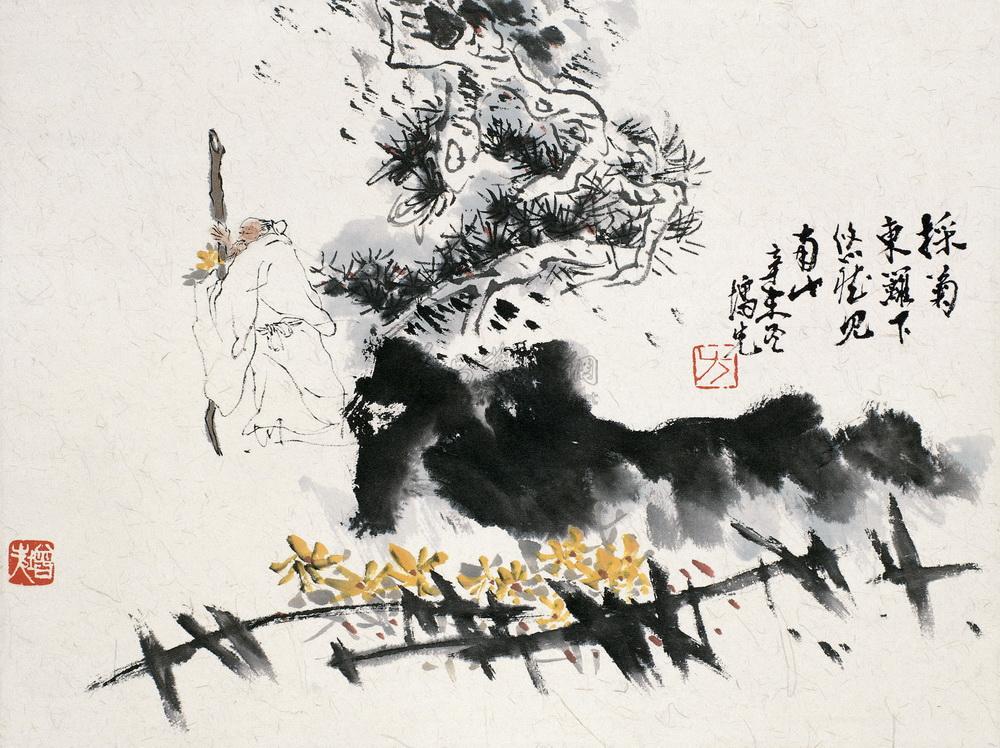 採菊
東籬下
悠然见
南山
辛未冬
增先
方